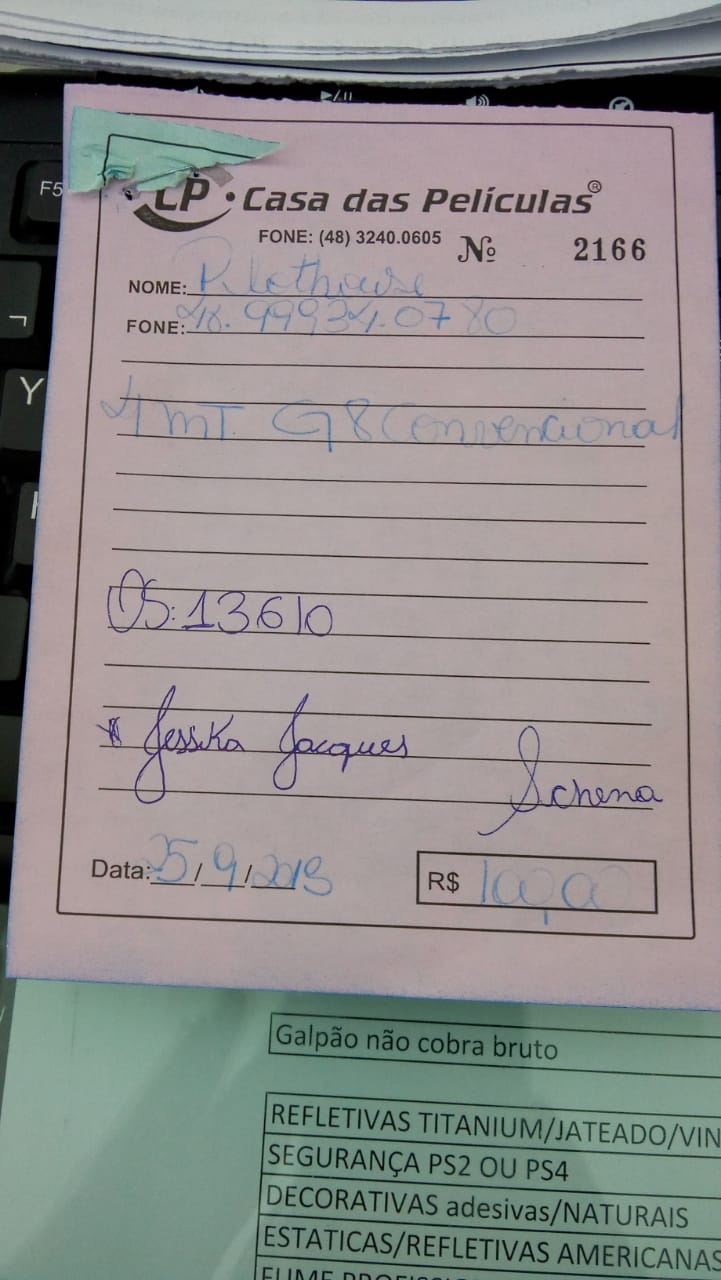 F5
CP · Casa das Películas®
FONE: (48) 3240.0605 Nº 2166
NOME:
FONE: 48. 99934.0780
Y
4 mT. G8 Convencional
OS: 13610
* Jessika Jacques
Schena
Data: 25/9/2019 R$ 100,00
Galpão não cobra bruto
REFLETIVAS TITANIUM/JATEADO/VIN
SEGURANÇA PS2 OU PS4
DECORATIVAS adesivas/NATURAIS
ESTATICAS/REFLETIVAS AMERICANAS